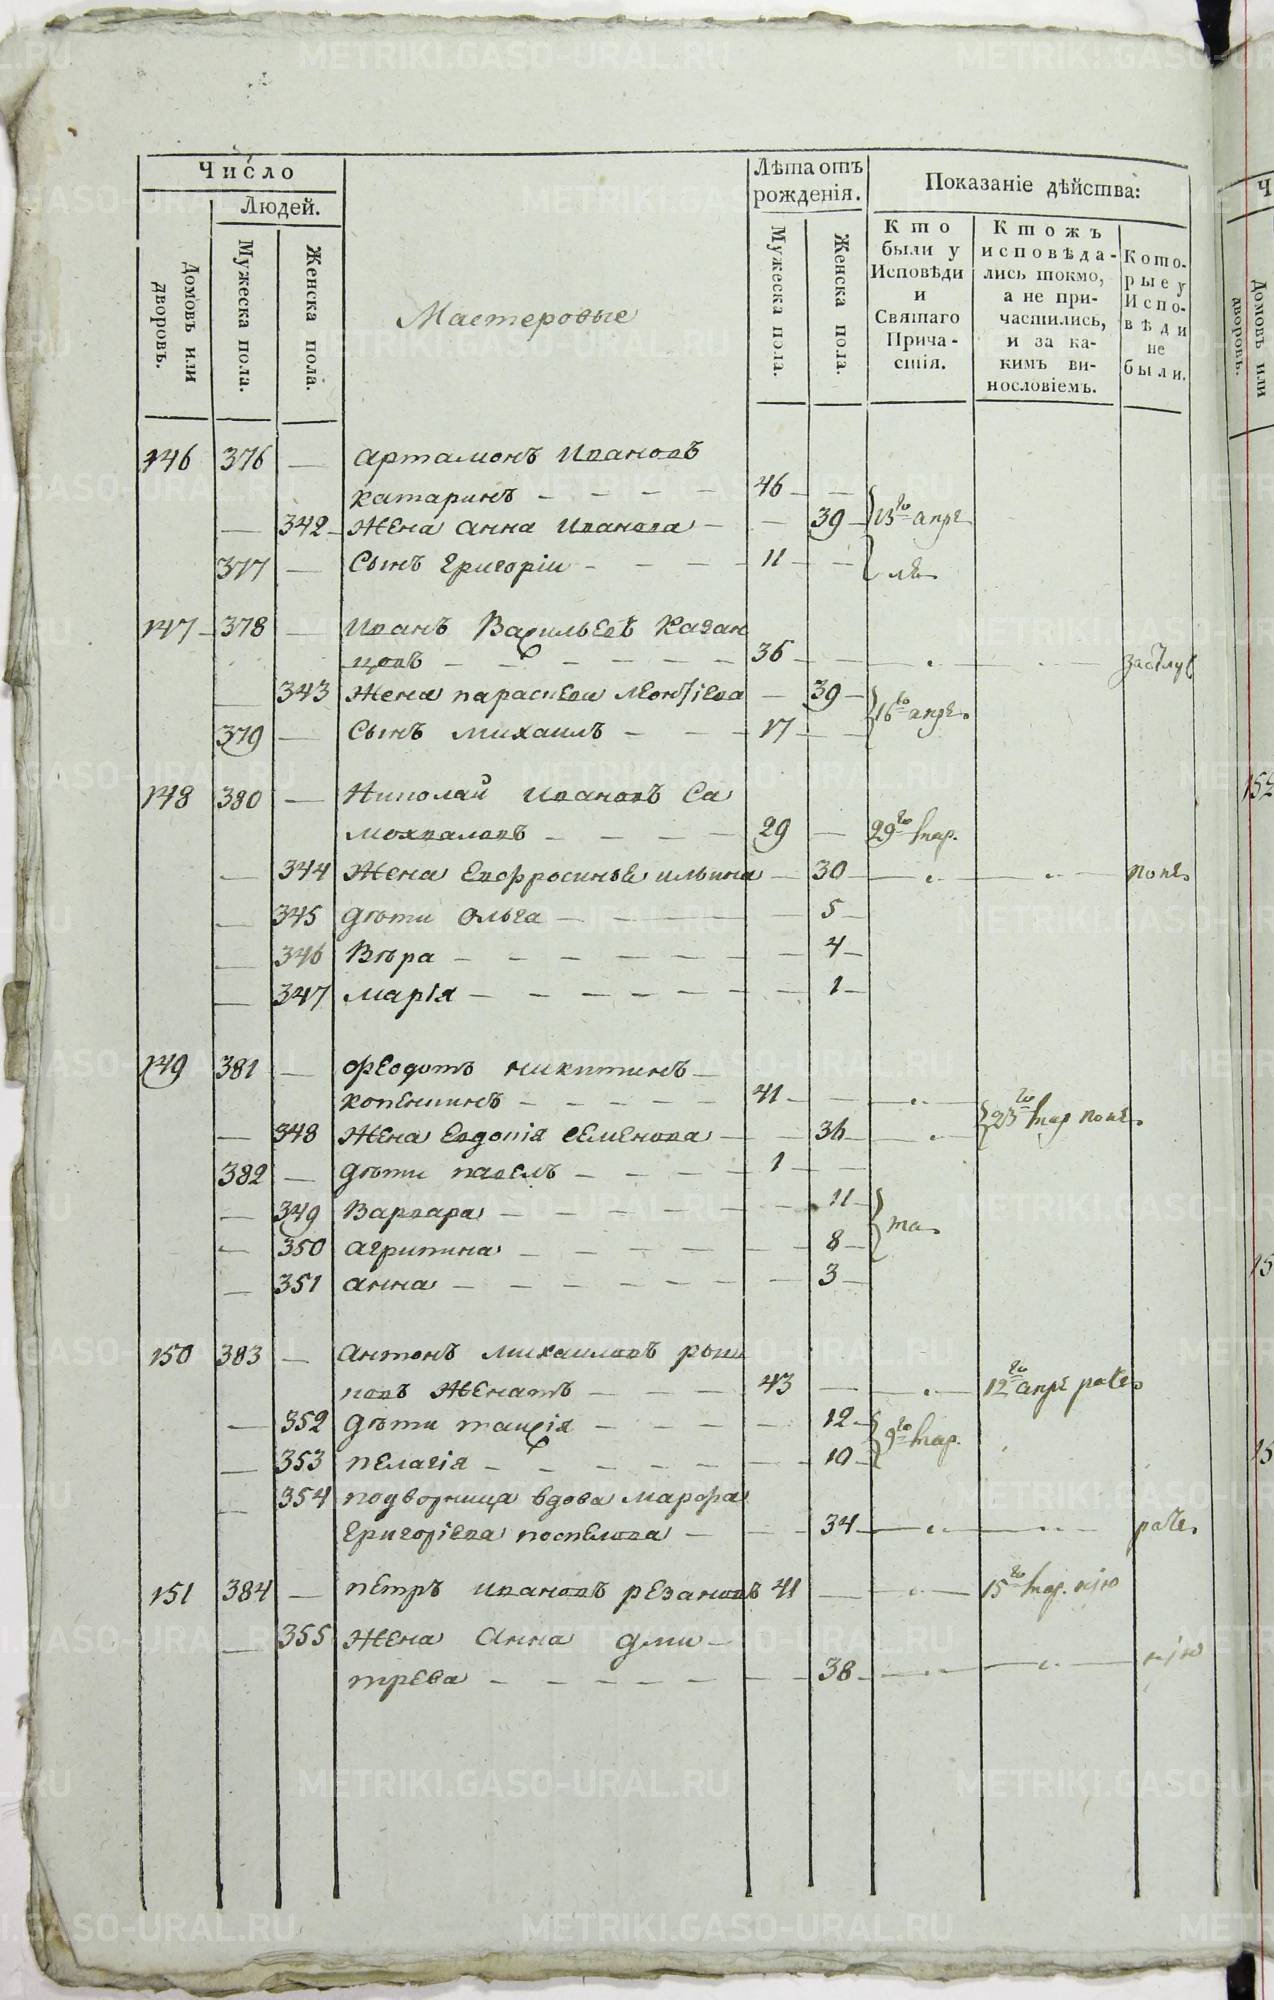 Число
Людей.
Домовъ или дворовъ.
Мужеска пола.
Женска пола.
Мастеровые
Лѣта отъ рожденія.
Мужеска пола.
Женска пола.
Показаніе дѣйства:
Кто были у Исповѣди и Святаго Причастія.
Ктожъ исповѣдались токмо, а не причастились, и за какимъ винословіемъ.
Которые у Исповѣди не были.
146 376 — Артамонъ Ивановъ
Катаринъ — — — — 46 — —
— 342 — Жена Анна Иванова — — 39 — 13го апре
377 — Сынъ Григорій — — — — 11 — — ля
147 — 378 — Иванъ Васильевъ Казан
цовъ — — — — — — 36 — —
— 343 Жена Параскева Леонтіева — 39 — 16го апре.
379 — Сынъ Михаилъ — — — 17 — —
148 380 — Николай Ивановъ Са
мохваловъ — — — — 29 — 29го мар.
— 344 Жена Евфросинья Ильина — 30 — — — попе.
— 345 Дѣти Ольга — — — — — 5 —
— 346 Вѣра — — — — — — — 4 —
— 347 Марія — — — — — — — 1 —
149 381 — Феодотъ Никитинъ —
Копенинъ — — — — — 41 — — — 23го мар попе.
— 348 Жена Евдокія Семенова — — 36 — —
382 — Дѣти Павелъ — — — — 1 — —
— 349 Варвара — — — — — — 11 —
— 350 Агрипина — — — — — — 8 — та.
— 351 Анна — — — — — — — 3 —
150 383 — Антонъ Михаиловъ
Женатъ — — — 43 — — 12го апре рабе.
— 352 Дѣти Таисія — — — — 12 — 9го мар.
— 353 Пелагія — — — — — — 10 —
— 354 Подворница вдова Марфа
Григоріева Поспелова — — 34 — — — рабе.
151 384 — Петръ Ивановъ Резановъ 41 — — 15го мар.
— 355 Жена Анна Дми—
трева — — — — — — — 38 — —
METRIKI.GASO-URAL.RU